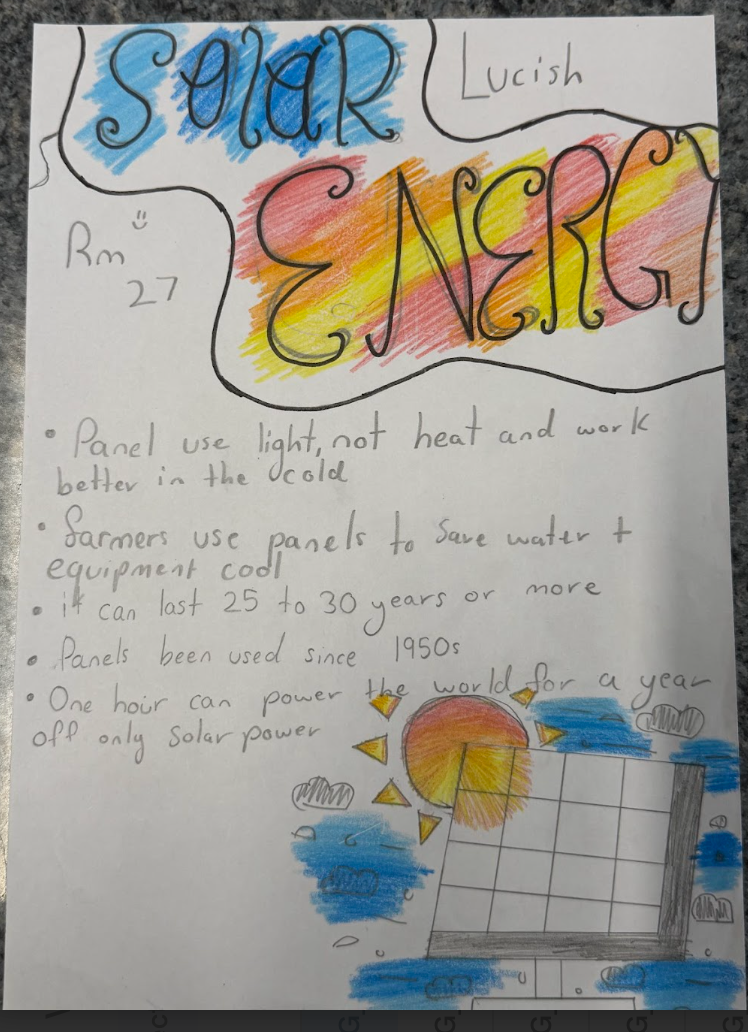 SOlaR
Lucish
ENERGY
Rm
27
• Panel use light, not heat and work
better in the cold
• farmers use panels to save water +
equipment cool
• it can last 25 to 30 years or more
• Panels been used since 1950s
• One hour can power the world for a year
off only solar power